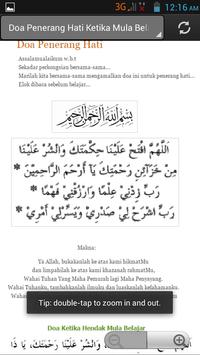 3G 12:16 AM
Doa Penerang Hati Ketika Mula Bela
Doa Penerang Hati
Assalamualaikum w.b.t
Sekadar perkongsian bersama-sama...
Marilah kita bersama-sama mengamalkan doa ini untuk penerang hati...
Elok dibaca sebelum belajar...
بسم الله الرحمن الرحيم
اَللّٰهُمَّ افْتَحْ عَلَيْنَا حِكْمَتَكَ وَانْشُرْ عَلَيْنَا
مِنْ خَزَائِنِ رَحْمَتِكَ يَا أَرْحَمَ الرَّاحِمِيْنَ *
رَبِّ زِدْنِيْ عِلْمًا وَارْزُقْنِيْ فَهْمًا *
رَبِّ اشْرَحْ لِيْ صَدْرِيْ وَيَسِّرْلِيْ أَمْرِيْ *
Makna:
Ya Allah, bukakanlah ke atas kami hikmatMu
dan limpahilah ke atas kami khazanah rahmatMu,
Wahai Tuhan Yang Maha Pemurah lagi Maha Penyayang.
Wahai Tuhanku, tambahkanlah ilmuku dan luaskanlah kefahamanku.
Wahai
Tip: double-tap to zoom in and out.
Doa Ketika Hendak Mula Belajar
عَلَيْنَا حِكْمَتَكَ وَانْشُرْ عَلَيْنَا رَحْمَتَكَ، يَا ذَا